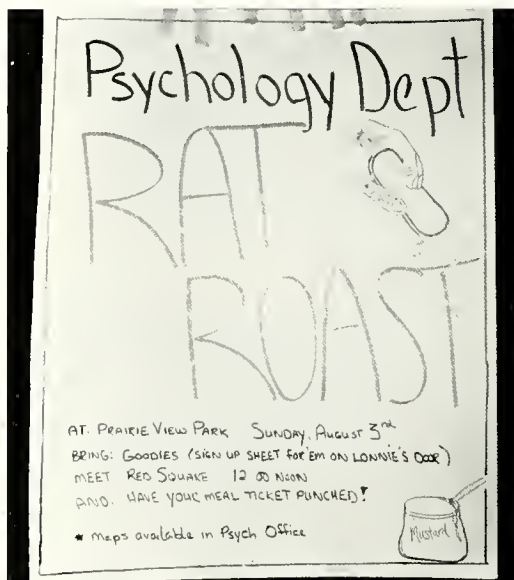 Psychology Dept
RAT
ROAST
AT: PRAIRIE VIEW PARK SUNDAY, AUGUST 3rd
BRING: GOODIES (SIGN UP SHEET for 'EM ON LONNIE'S DOOR)
MEET RED SQUARE 12 00 NOON
AND. HAVE YOUR MEAL TICKET PUNCHED!
* maps available in Psych Office
Mustard